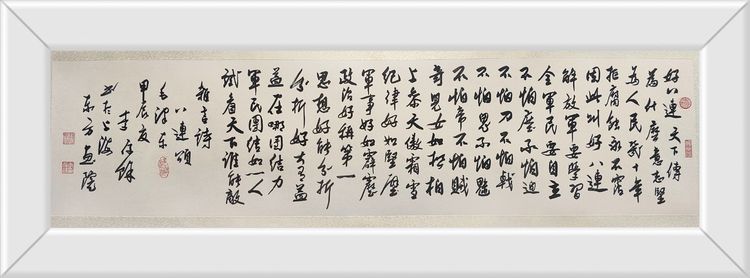 好八連天下傳
為什麼意志堅
為人民幾十年
拒腐蝕永不沾
因此叫好八連
解放軍要學習
全軍民要自立
不怕壓不怕迫
不怕刀不怕戟
不怕鬼不怕魅
不怕帝不怕賊
奇兒女如松柏
上參天傲霜雪
紀律好如堅壁
軍事好如霹靂
政治好稱第一
思想好能分析
分析好大有益
益在哪團結力
軍民團結如一人
試看天下誰能敵
雜言詩
八連頌
毛澤東
甲辰夏
李餘
書於上海
東方畫院